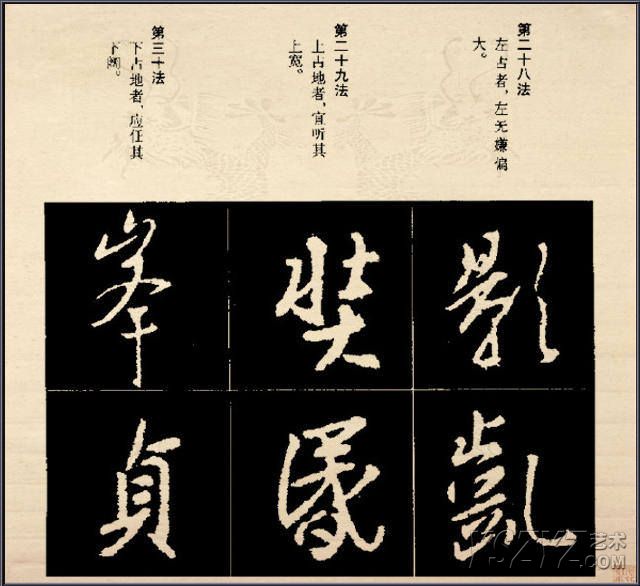 第二十八法
左占者，左无嫌偏
大。
第二十九法
上占地者，宜听其
上宽。
第三十法
下占地者，应任其
下阔。
影
奘
峯
貞
艺术
.com